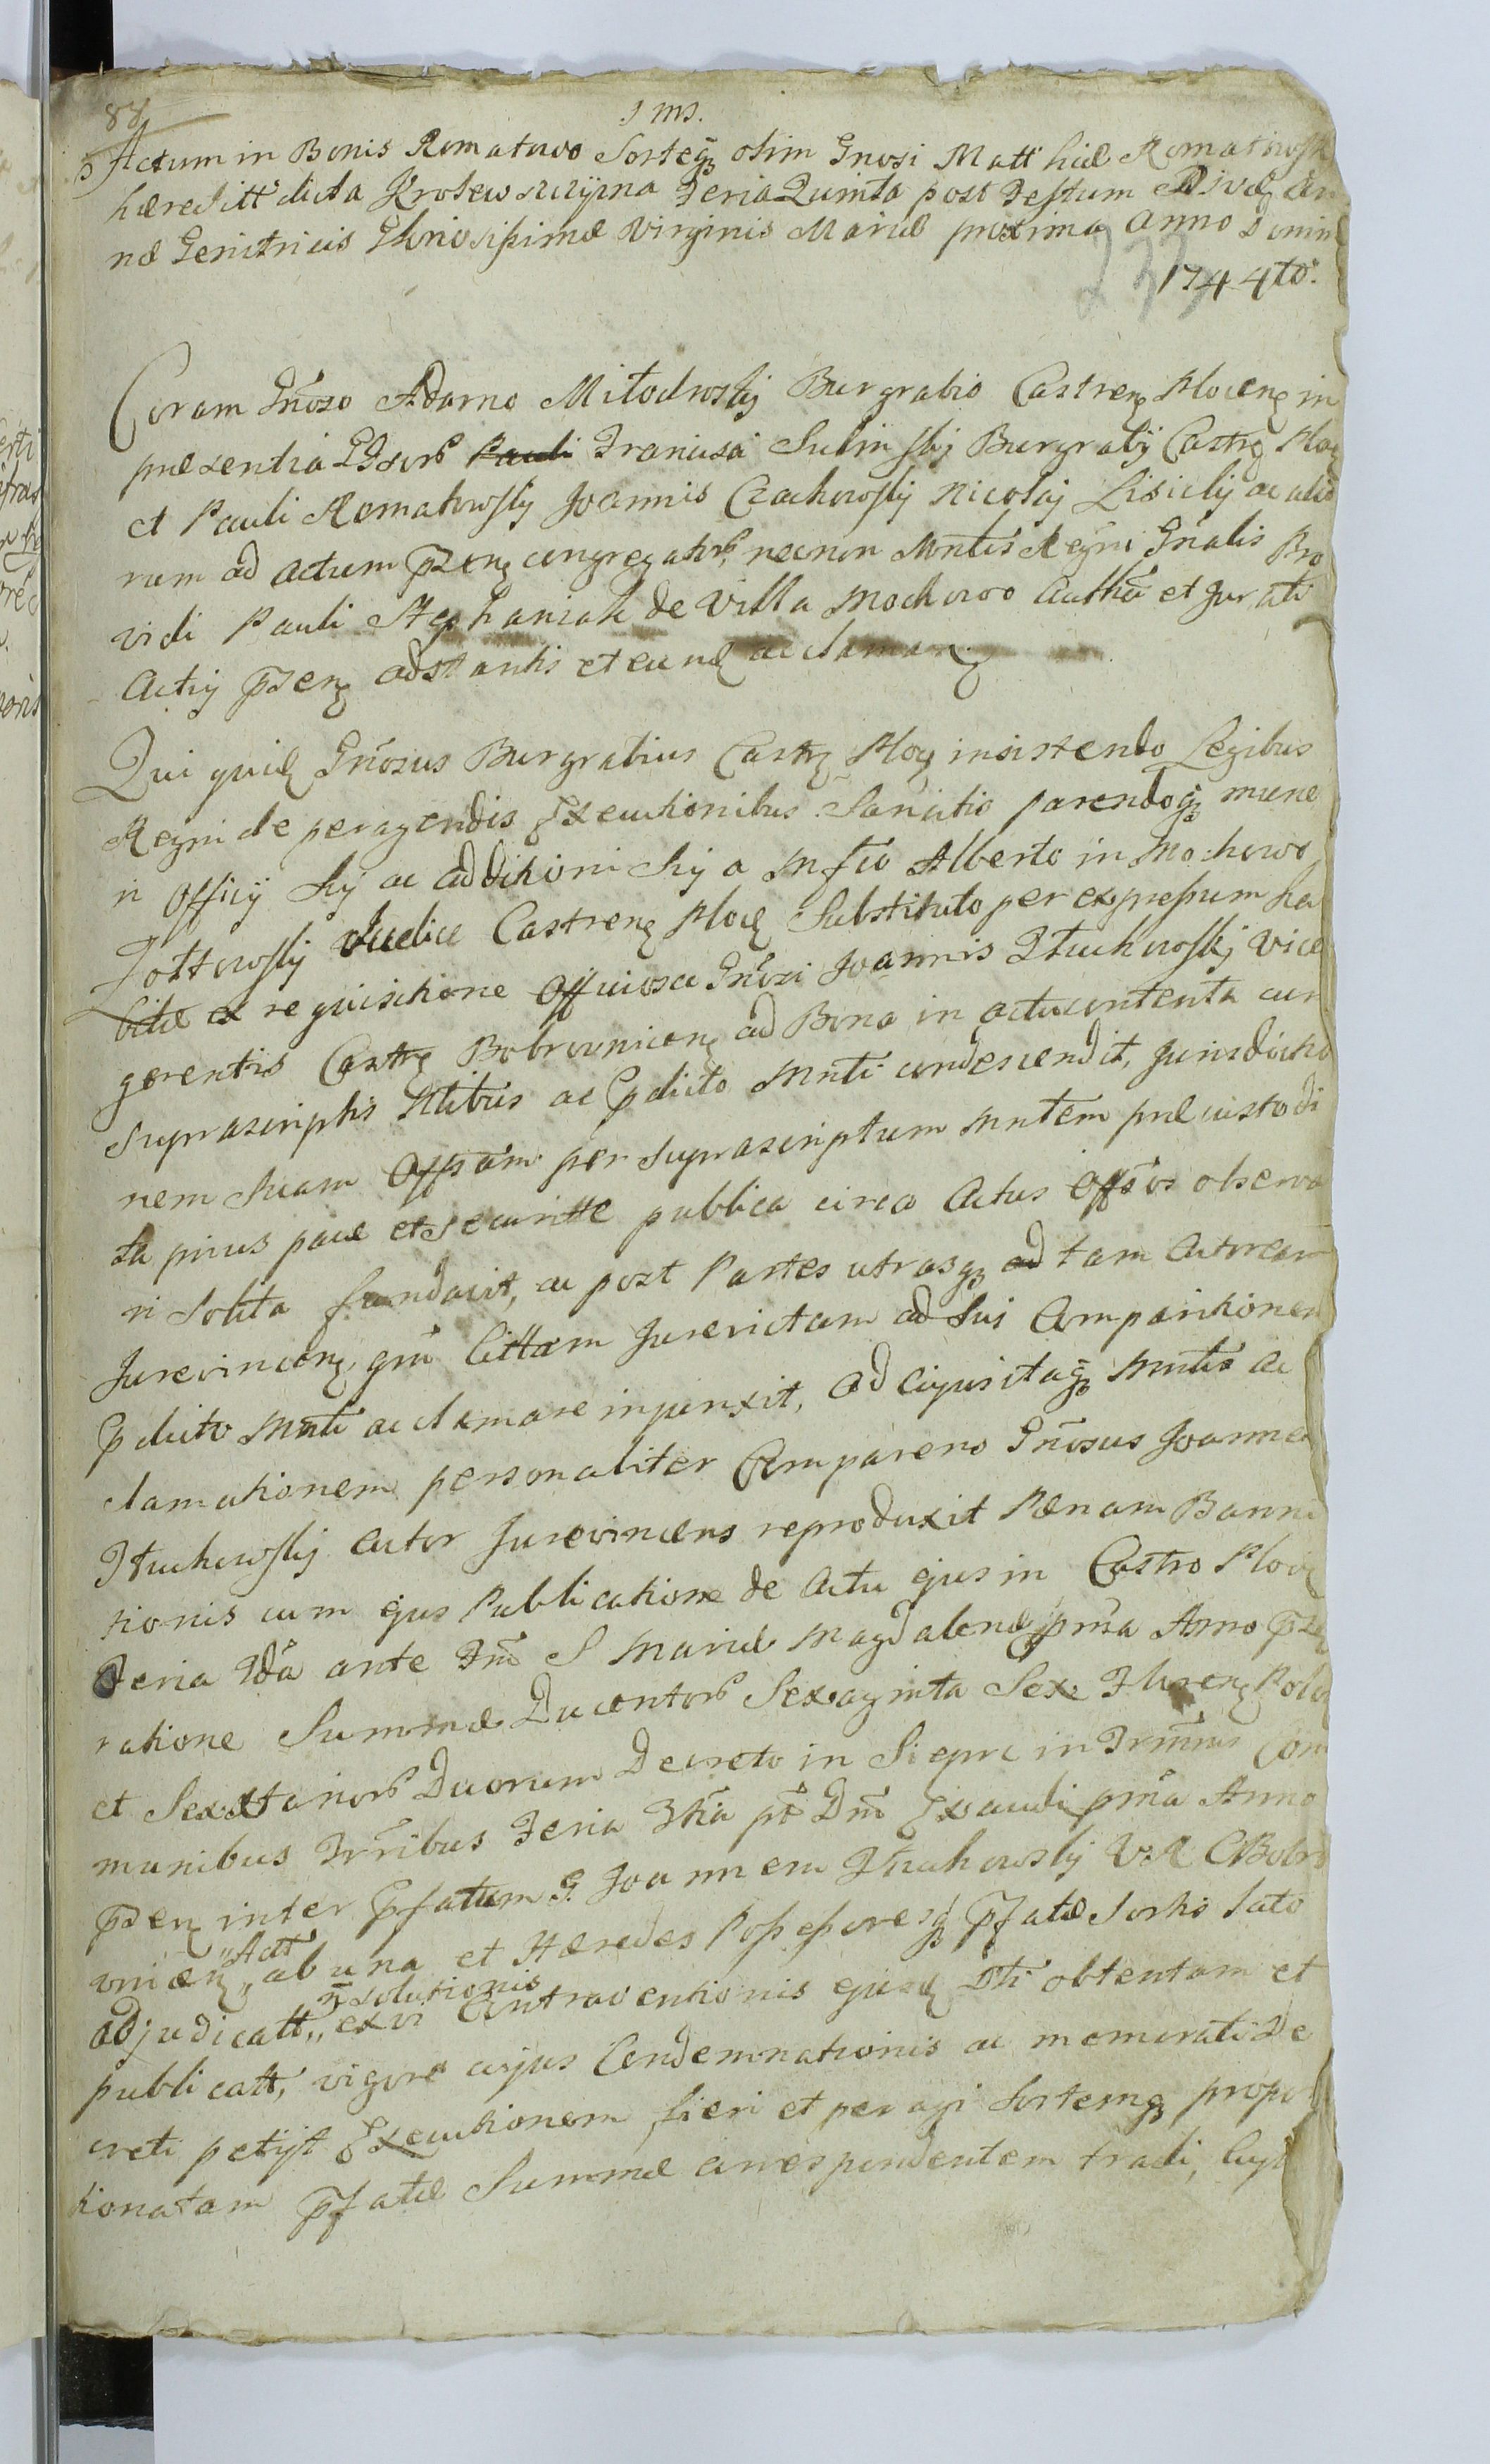 88
J M J.
Actum in Bonis Romatowo Sorteq; olim Gnosi Matthiæ Romatowsk
hæreditt dicta Krolewszczyzna Feria Quinta post Festum Divæ An
næ Genitricis Gloriosissimæ Virginis Mariæ proxima Anno Domini
1744to.
Coram Gnõso Adamo Miłodroskj Burgrabio Castren Plocen in
præsentia GGsorb Francisci Sulinskj Burgrabij Castr Ploc
et Pauli Romatowskj Joannis Czachowskj Nicolaj Lisickj ac alio
rum ad actum p̃zen congregatorb, necnon Mntis Regni Gñalis Pro
vidi Pauli Stephaniak de Villa Mochowo Authẽ et Jurati
Actuj p̃sen adstantis et eund acclaman
Qui quid Gnõsus Burgrabius Castr Ploc insistendo Legibus
Regni de peragendis Executionibus Sancitis parendoq; mune
ri Officij Sui ac additioni Sui a Mfco Alberto in Mochowo
Zottowskj Judice Castren Ploc Substituto per expressum ha
bitæ ex requisitione Officiosa Gnõsi Joannis Ttuchowskj Vice
gerentis Castr Bobrownicen ad Bona in actu contenta cum
Suprascriptis Ntibus ac p̃dicto Mnti condescendit, Jurisdictio
nem Suam Offsam per Suprascriptum Mntem præcustodi
ta prius pace et securitte publica circa Actus Offsos observa
ri Solita fundavit, ac post Partes utrasq; ad tam Actoream
Jurevincen, qm Cittam Jurevictam ad Sui Comparitionem
p̃dicto Mnti acclamare injunxit, ad cujus itaq; Mntis ac
clamationem personaliter Comparens Gnõsus Joannes
Ttuchowskj Actor Jurevincens reproduxit Pænam Banni
tionis cum ejus Publicatione de Actu ejus in Castro Ploc
Feria 2da ante Fm S Mariæ Magdalenæ pma Anno p̃zen
ratione Summæ Ducentorb Sexaginta Sex Floren Polo
et Sextanorb Duorum Decreto in Sierpc in Trminis Com
munibus Trribus Feria 3tia pt Dm Exaudi pma Anno
p̃zen inter p̃fatum G. Joannem Ttuchowskj V.R C Bobro
vnicen Act ab una et Hæredes Possessoresq; p̃fatæ Sortis Lato
adjudicatt, ñsolutionis ex vi Contraventionis ejusd Dti obtentam et
publicatt, vigore cujus Condemnationis ac memorati De
creti petijt Executionem fieri et peragi Sortemq; propor
tionatam p̃fatæ Summæ correspondentem tradi,